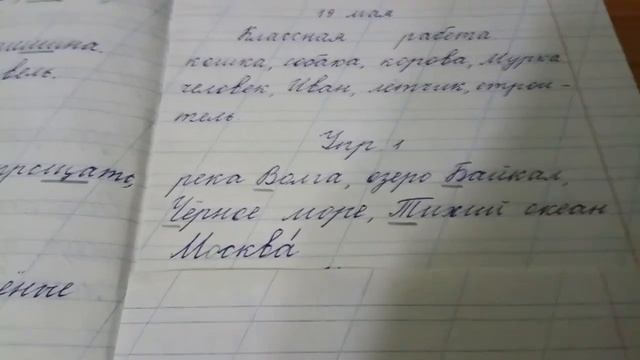 19 мая
Классная работа
кошка, собака, корова, Мурка
человек, Иван, летчик, строи-
тель
Упр 1
река Волга, озеро Байкал,
Чёрное море, Тихий океан
Москва́